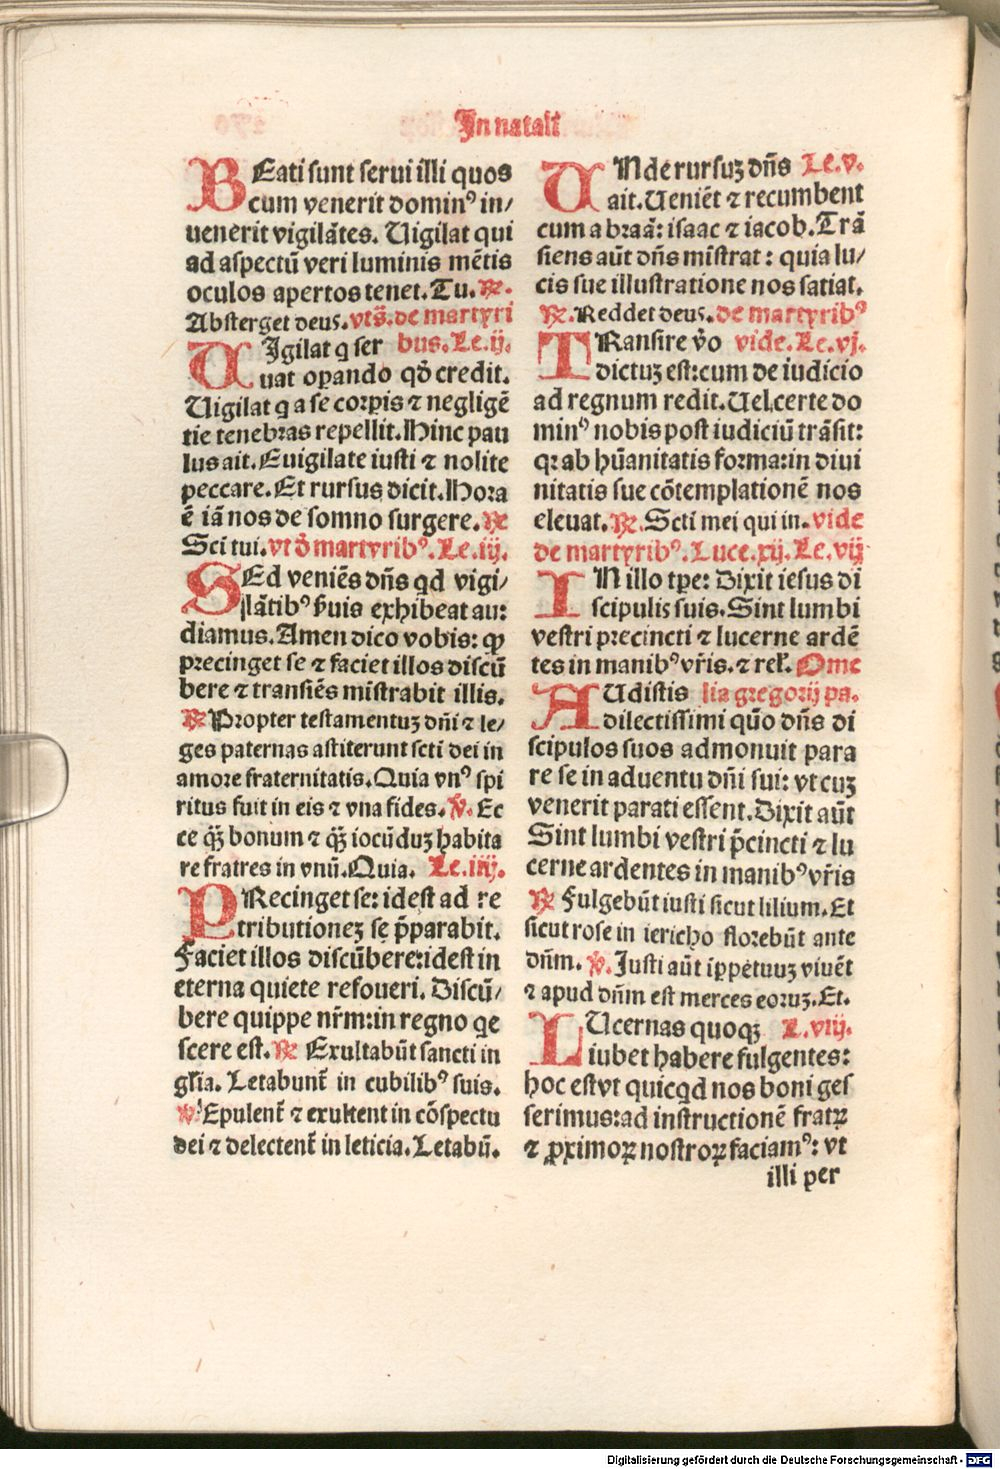 In natali
BEati sunt serui illi quos
cum venerit dominꝰ in/
uenerit vigilātes. Uigilat qui
ad aspectū veri luminis mētis
oculos apertos tenet. Tu. ℟.
Absterget deus. vts̄. de martyri
UIgilat q ser bus. Le. ij.
uat operando qd̄ credit.
Uigilat q a se corpis ⁊ negligē
tie tenebras repellit. Hinc pau
lus ait. Euigilate iusti ⁊ nolite
peccare. Et rursus dicit. Hora
ē iā nos de somno surgere. ℟
Sci tui. vt d̄ martyribꝰ. Le. iij.
SEd veniēs dn̄s qd vigi/
lātibꝰ ẜuis exhibeat au:
diamus. Amen dico vobis: ꝙ
precinget se ⁊ faciet illos discū
bere ⁊ transiēs mīstrabit illis.
℟ Propter testamentuꝫ dn̄i ⁊ le/
ges paternas astiterunt scti dei in
amore fraternitatis. Quia vnꝰ spi
ritus fuit in eis ⁊ vna fides. ℣. Ec
ce qꝫ̄ bonum ⁊ qꝫ̄ iocūduꝫ habita
re fratres in vnū. Quia. Le. iiij.
PRecinget se: idest ad re
tributionez se p̄parabit.
Faciet illos discūbere: idest in
eterna quiete refoueri. Discū/
bere quippe nr̄m: in regno qe
scere est. ℟ Exultabūt sancti in
gl̄ia. Letabunt̄ in cubilibꝰ suis.
℣ Epulent̄ ⁊ exultent in cōspectu
dei ⁊ delectent̄ in leticia. Letabū.
UNde rursuꝫ dn̄s Le. v.
ait. Ueniēt ⁊ recumbent
cum abraā: isaac ⁊ iacob. Trā
siens aūt dn̄s mīstrat: quia lu/
cis sue illustratione nos satiat.
℟. Reddet deus. de martyribꝰ
TRansire v̄o vide. Le. vj.
dictuꝫ est: cum de iudicio
ad regnum redit. Uel certe do
minꝰ nobis post iudiciū trāsit:
qꝛ ab hūanitatis forma: in diui
nitatis sue cōtemplationē nos
eleuat. ℟. Scti mei qui in. vide
de martyribꝰ. Luce. xij. Le. vij
IN illo tpe: Dixit iesus di
scipulis suis. Sint lumbi
vestri precincti ⁊ lucerne ardē
tes in manibꝰ vr̄is. ⁊ rel̄. Ome
AUdistis lia gregorij pa.
dilectissimi quo dn̄s di
scipulos suos admonuit para
re se in aduentu dn̄i sui: vt cuꝫ
venerit parati essent. Dixit aūt
Sint lumbi vestri p̄cincti ⁊ lu
cerne ardentes in manibꝰ vr̄is
℟ Fulgebūt iusti sicut lilium. Et
sicut rose in iericho florebūt ante
dn̄m. ℣. Justi aūt īppetuuꝫ viuēt
⁊ apud dn̄m est merces eoruꝫ. Et.
LUcernas quoqꝫ L. viij.
iubet habere fulgentes:
hoc est vt quicqd nos boni ges
serimus: ad instructionē fratꝝ
⁊ ꝓximoꝝ nostroꝝ faciamꝰ: vt
illi per
Digitalisierung gefördert durch die Deutsche Forschungsgemeinschaft - DFG